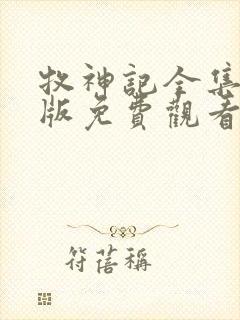 牧神記全集
版免費觀看
符蓓稱